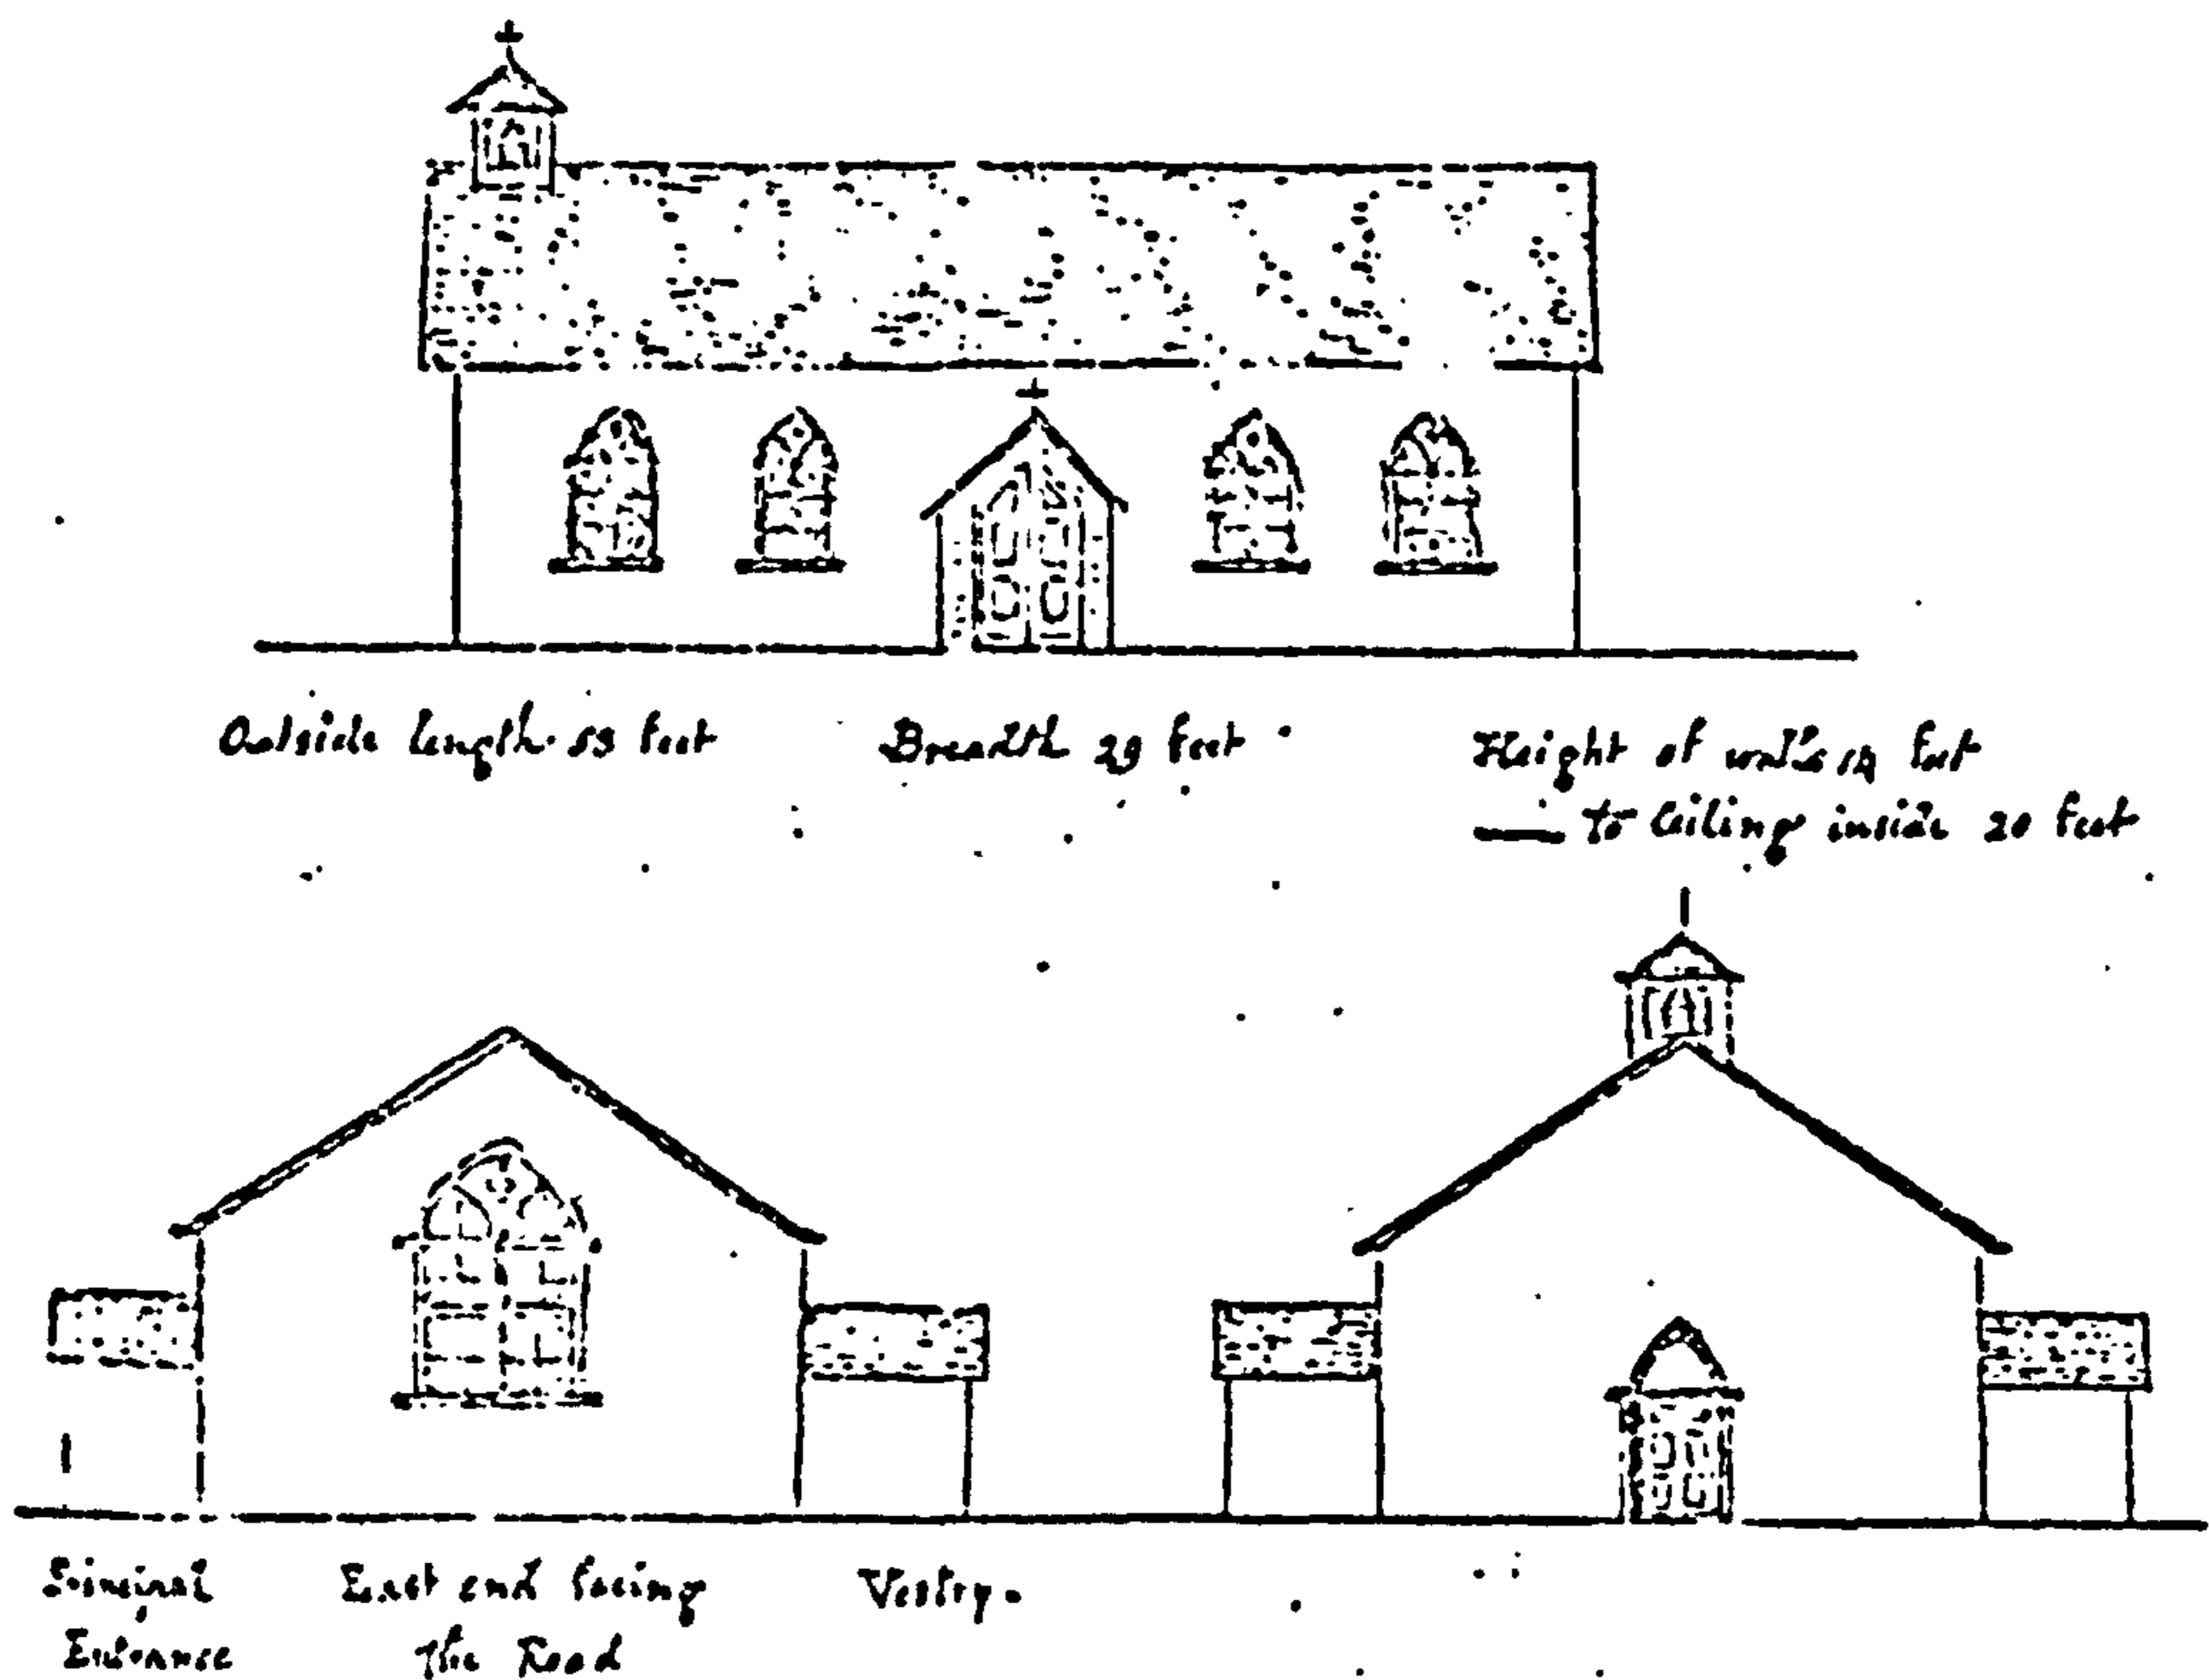 Outside length. 53 feet
Breadth 29 feet
Height of walls 14 feet
— to Ceiling inside 20 feet
Principal
Entrance
East end facing
the Road
Vestry.